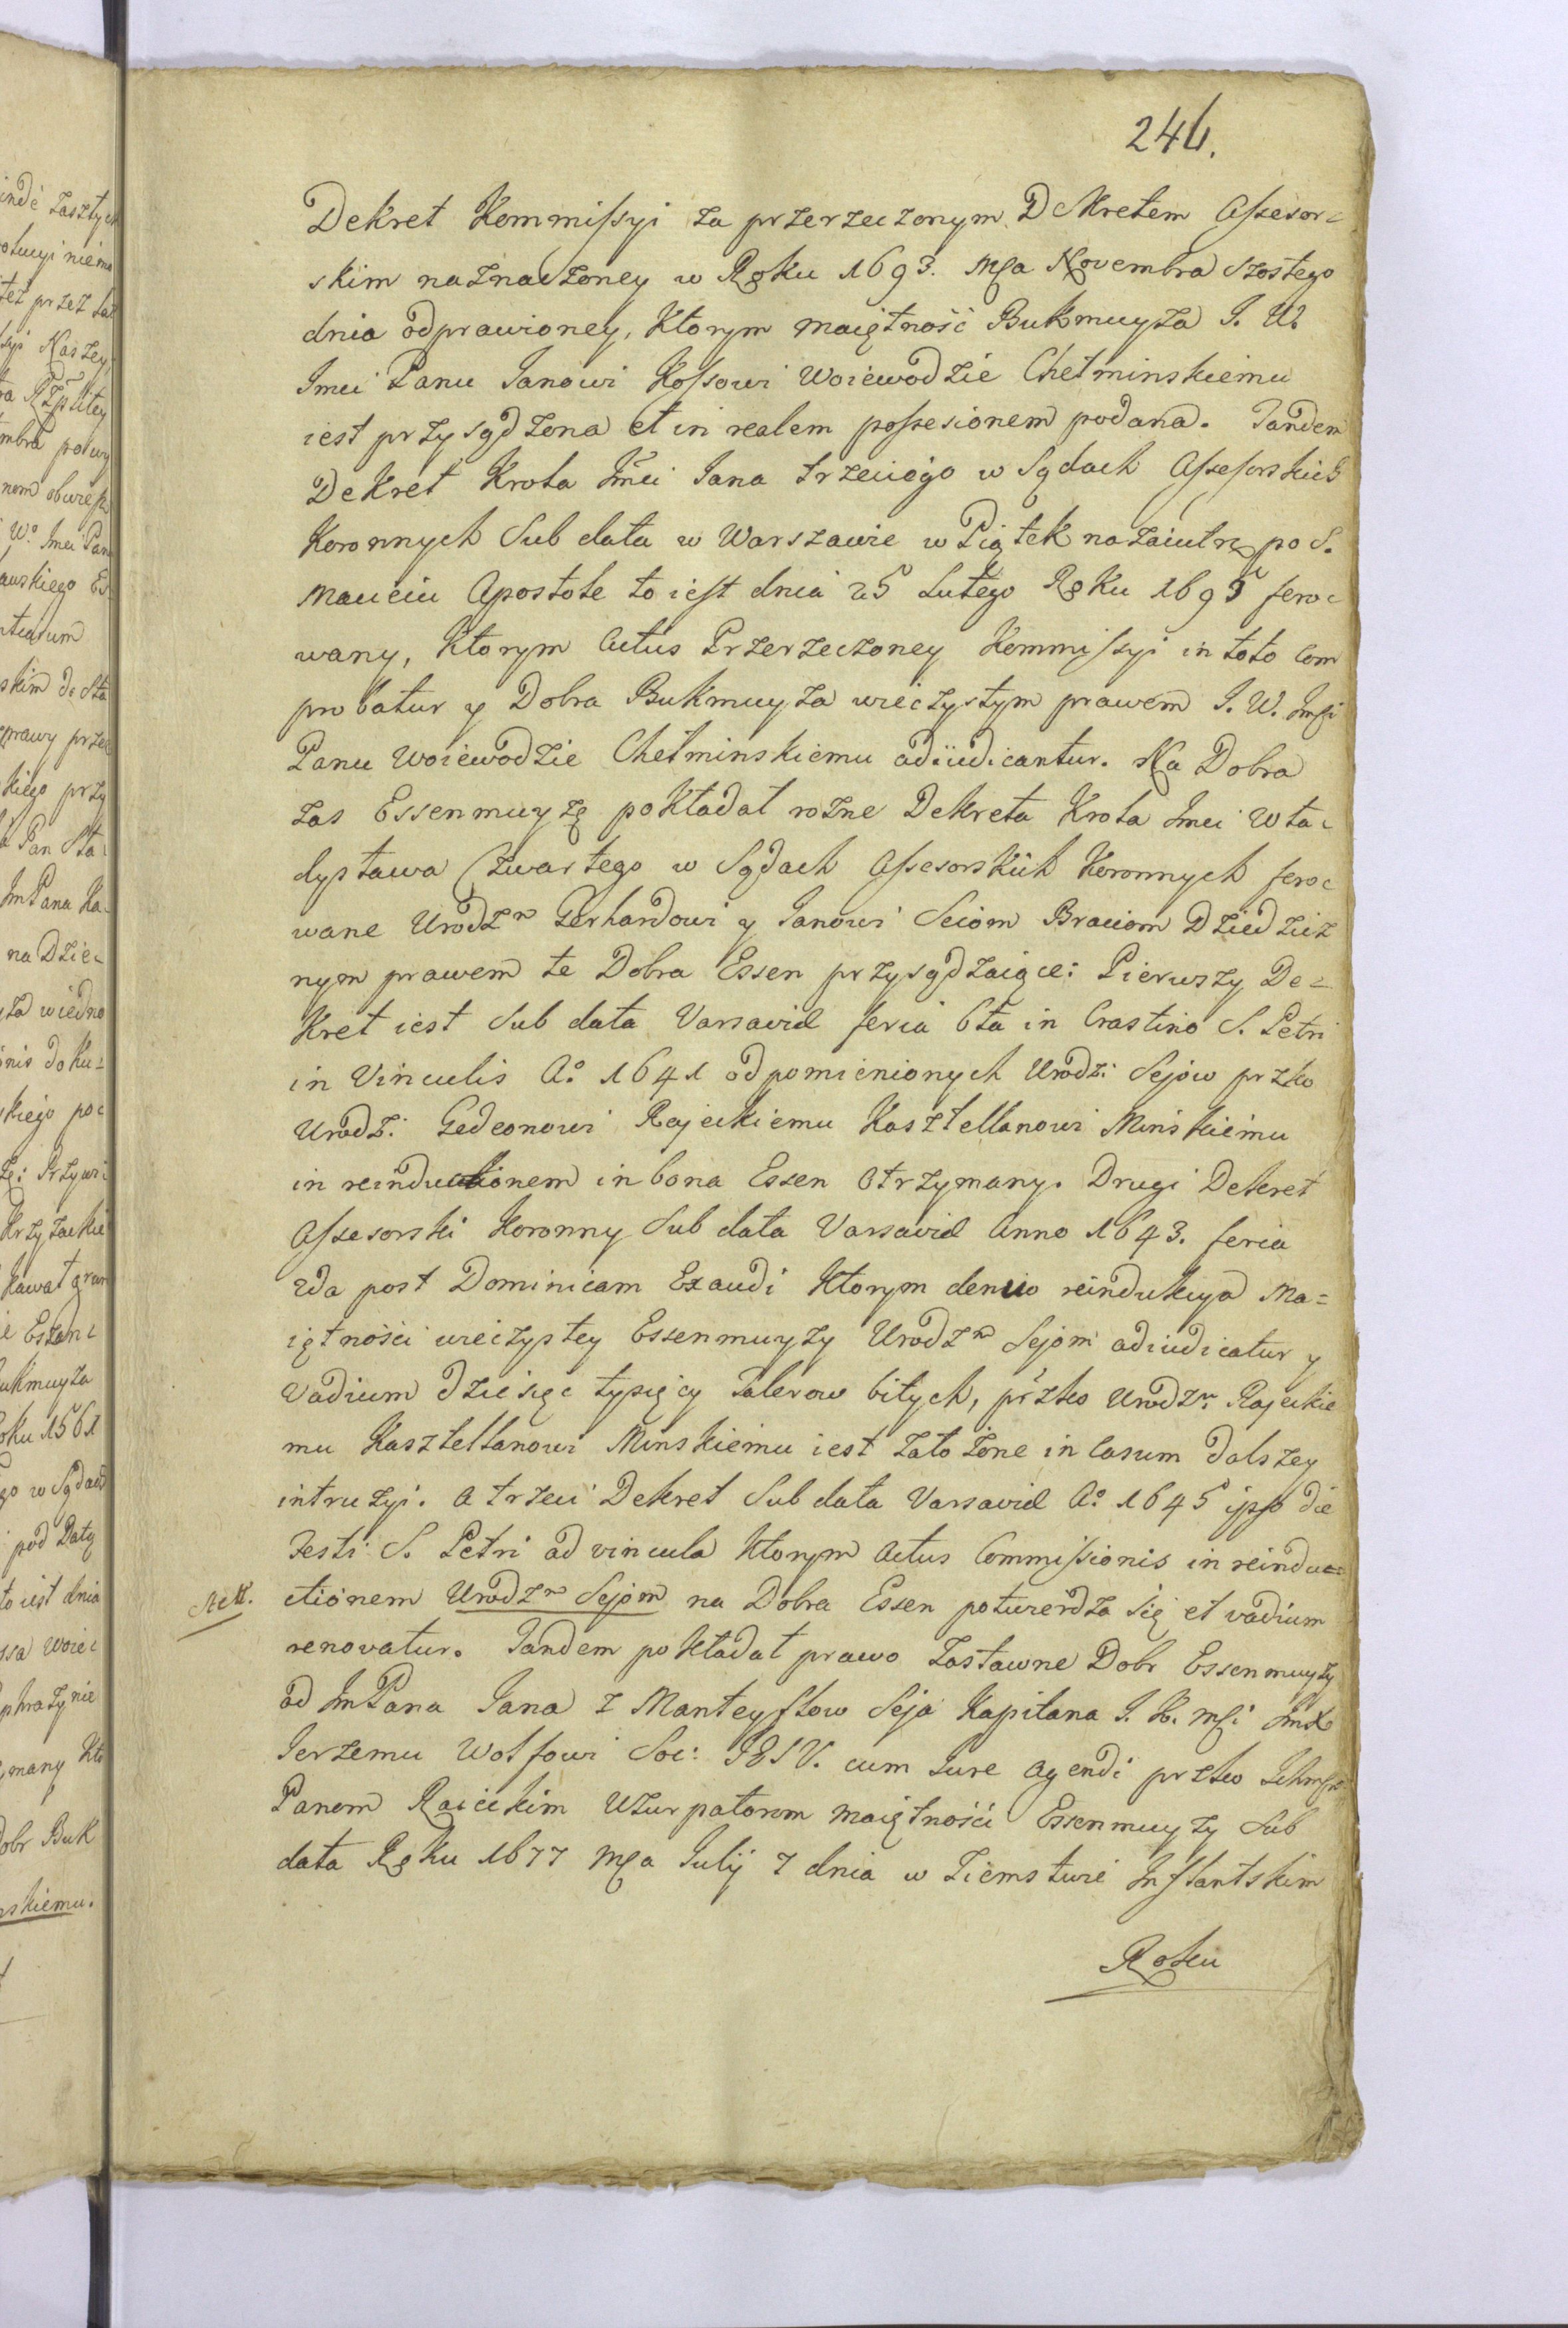 246.
Dekret Kommissyi za przerzeczonym Dekretem Assesor=
skim naznaczoney w Roku 1693. Msca Novembra szostego
dnia odprawioney, ktorym maiętność Bukmuyza J. W.
Jmci Panu Janowi Kossowi Woiewodzie Chełminskiemu
iest przysądzona et in realem possesionem podana. Tandem
Dekret Krola Jmci Jana trzeciego w Sądach Assesorskich
Koronnych Sub data w Warszawie w Piątek nazaiutrz po S.
Macieiu Apostole to iest dnia 25 Lutego Roku 1695 fero=
wany, ktorym Actus Przerzeczoney Kommissyi in toto com
probatur y Dobra Bukmuyza wieczystym prawem J. W. Jmsci
Panu Woiewodzie Chełminskiemu adiudicantur. Na Dobra
zas Essenmuyzę pokładał rożne Dekreta Krola Jmci Wła=
dysława Czwartego w Sądach Assesorskich Koronnych fero=
wane Urodzm Gerhardowi y Janowi Seiom Braciom Dziedzicz
nym prawem te Dobra Essen przysądzaiące: Pierwszy De=
kret iest Sub data Varsaviæ feria 6ta in Crastino S. Petri
in Vinculis Ao 1641 od pomienionych Urodz: Sejow przko
Urodz: Gedeonowi Rajeckiemu Kasztellanowi Minskiemu
in reinductionem in bona Essen otrzymany. Drugi Dekret
Assesorski Koronny Sub data Varsaviæ Anno 1643. feria
2da post Dominicam Exaudi ktorym denuo reindukcya Ma=
iętności wieczystey Essenmuyzy Urodzm Sejom adiudicatur y
Vadium dziesięc tysięcy Talerow bitych, przko Urodzm. Rajeckie
mu Kasztellanowi Minskiemu iest założone in casum dalszey
intruzyi. a trzeci Dekret Sub data Varsaviæ Ao 1645 ipso die
Festi S. Petri ad vincula ktorym Actus Commissionis in reindu=
ctionem Urodzm Sejom na Dobra Essen potwierdza się et vadium
renovatur. Tandem pokładał prawo Zastawne Dobr Essenmuyzy
od JmPana Jana z Manteyflow Seja Kapitana J. K. msci JmX
Jerzemu Wolfowi Soc: JESV. cum Jure agendi przko Ichmsci
Panom Raieckim Uzurpatorom maiętności Essenmuyzy Sub
data Roku 1677 msca Julij 7 dnia w Ziemstwie Inflantskim
Roku